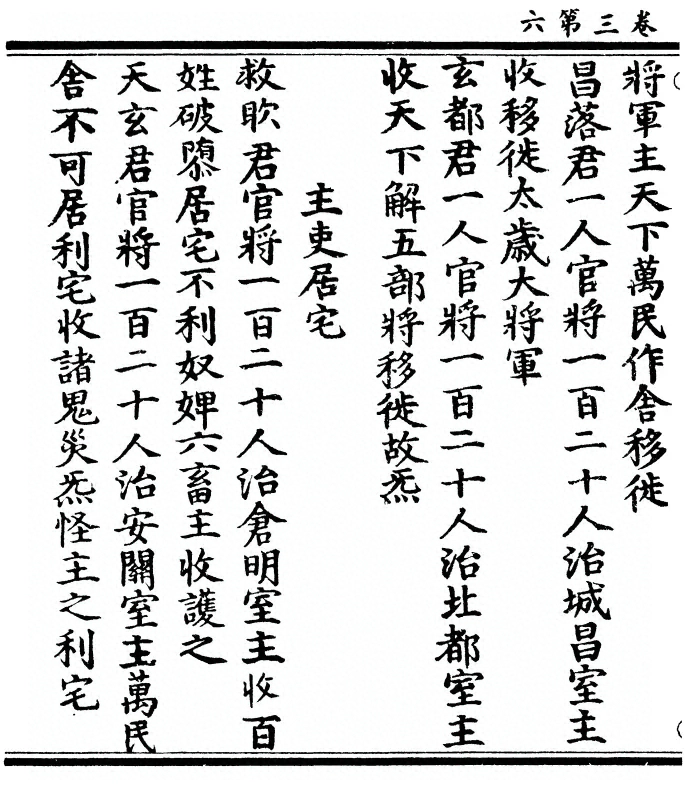 卷三第六
將軍主天下萬民作舍移徙
昌落君一人官將一百二十人治城昌室主
收移徙太歲大將軍
玄都君一人官將一百二十人治北都室主
收天下解五部將移徙故炁
主吏居宅
救欥君官將一百二十人治倉明室主收百
姓破隳居宅不利奴婢六畜主收護之
天玄君官將一百二十人治安關室主萬民
舍不可居利宅收諸鬼災炁怪主之利宅